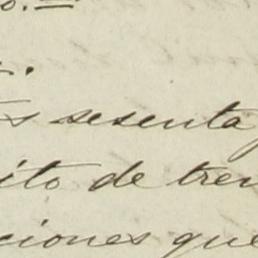 o.=
s sesenta y
ito de tren
ciones que